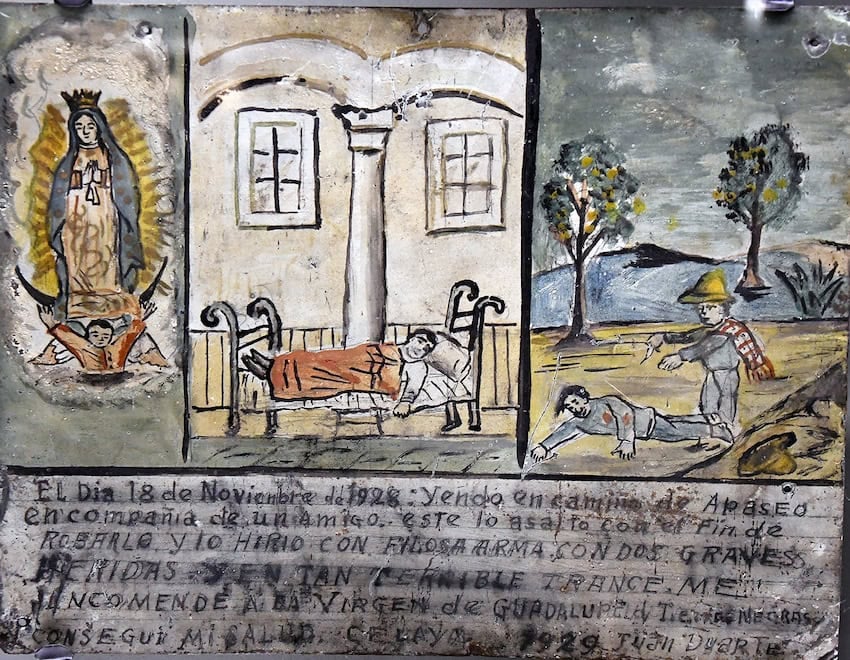 EL Dia 18 de Noviembre de 1928: Yendo en camino de Apaseo
en compañia de un amigo. este lo asalto con el Fin de
ROBARLO. Y lo HIRIO CON FILOSA ARMA CON DOS GRAVES
HERIDAS. Y EN TAN TERRIBLE TRANCE. ME
ENCOMENDÉ A LA VIRGEN de GUADALUPE, Tierras NEGRAS
CONSEGUI MI SALUD. CELAYA 1929 Juan Dyarte